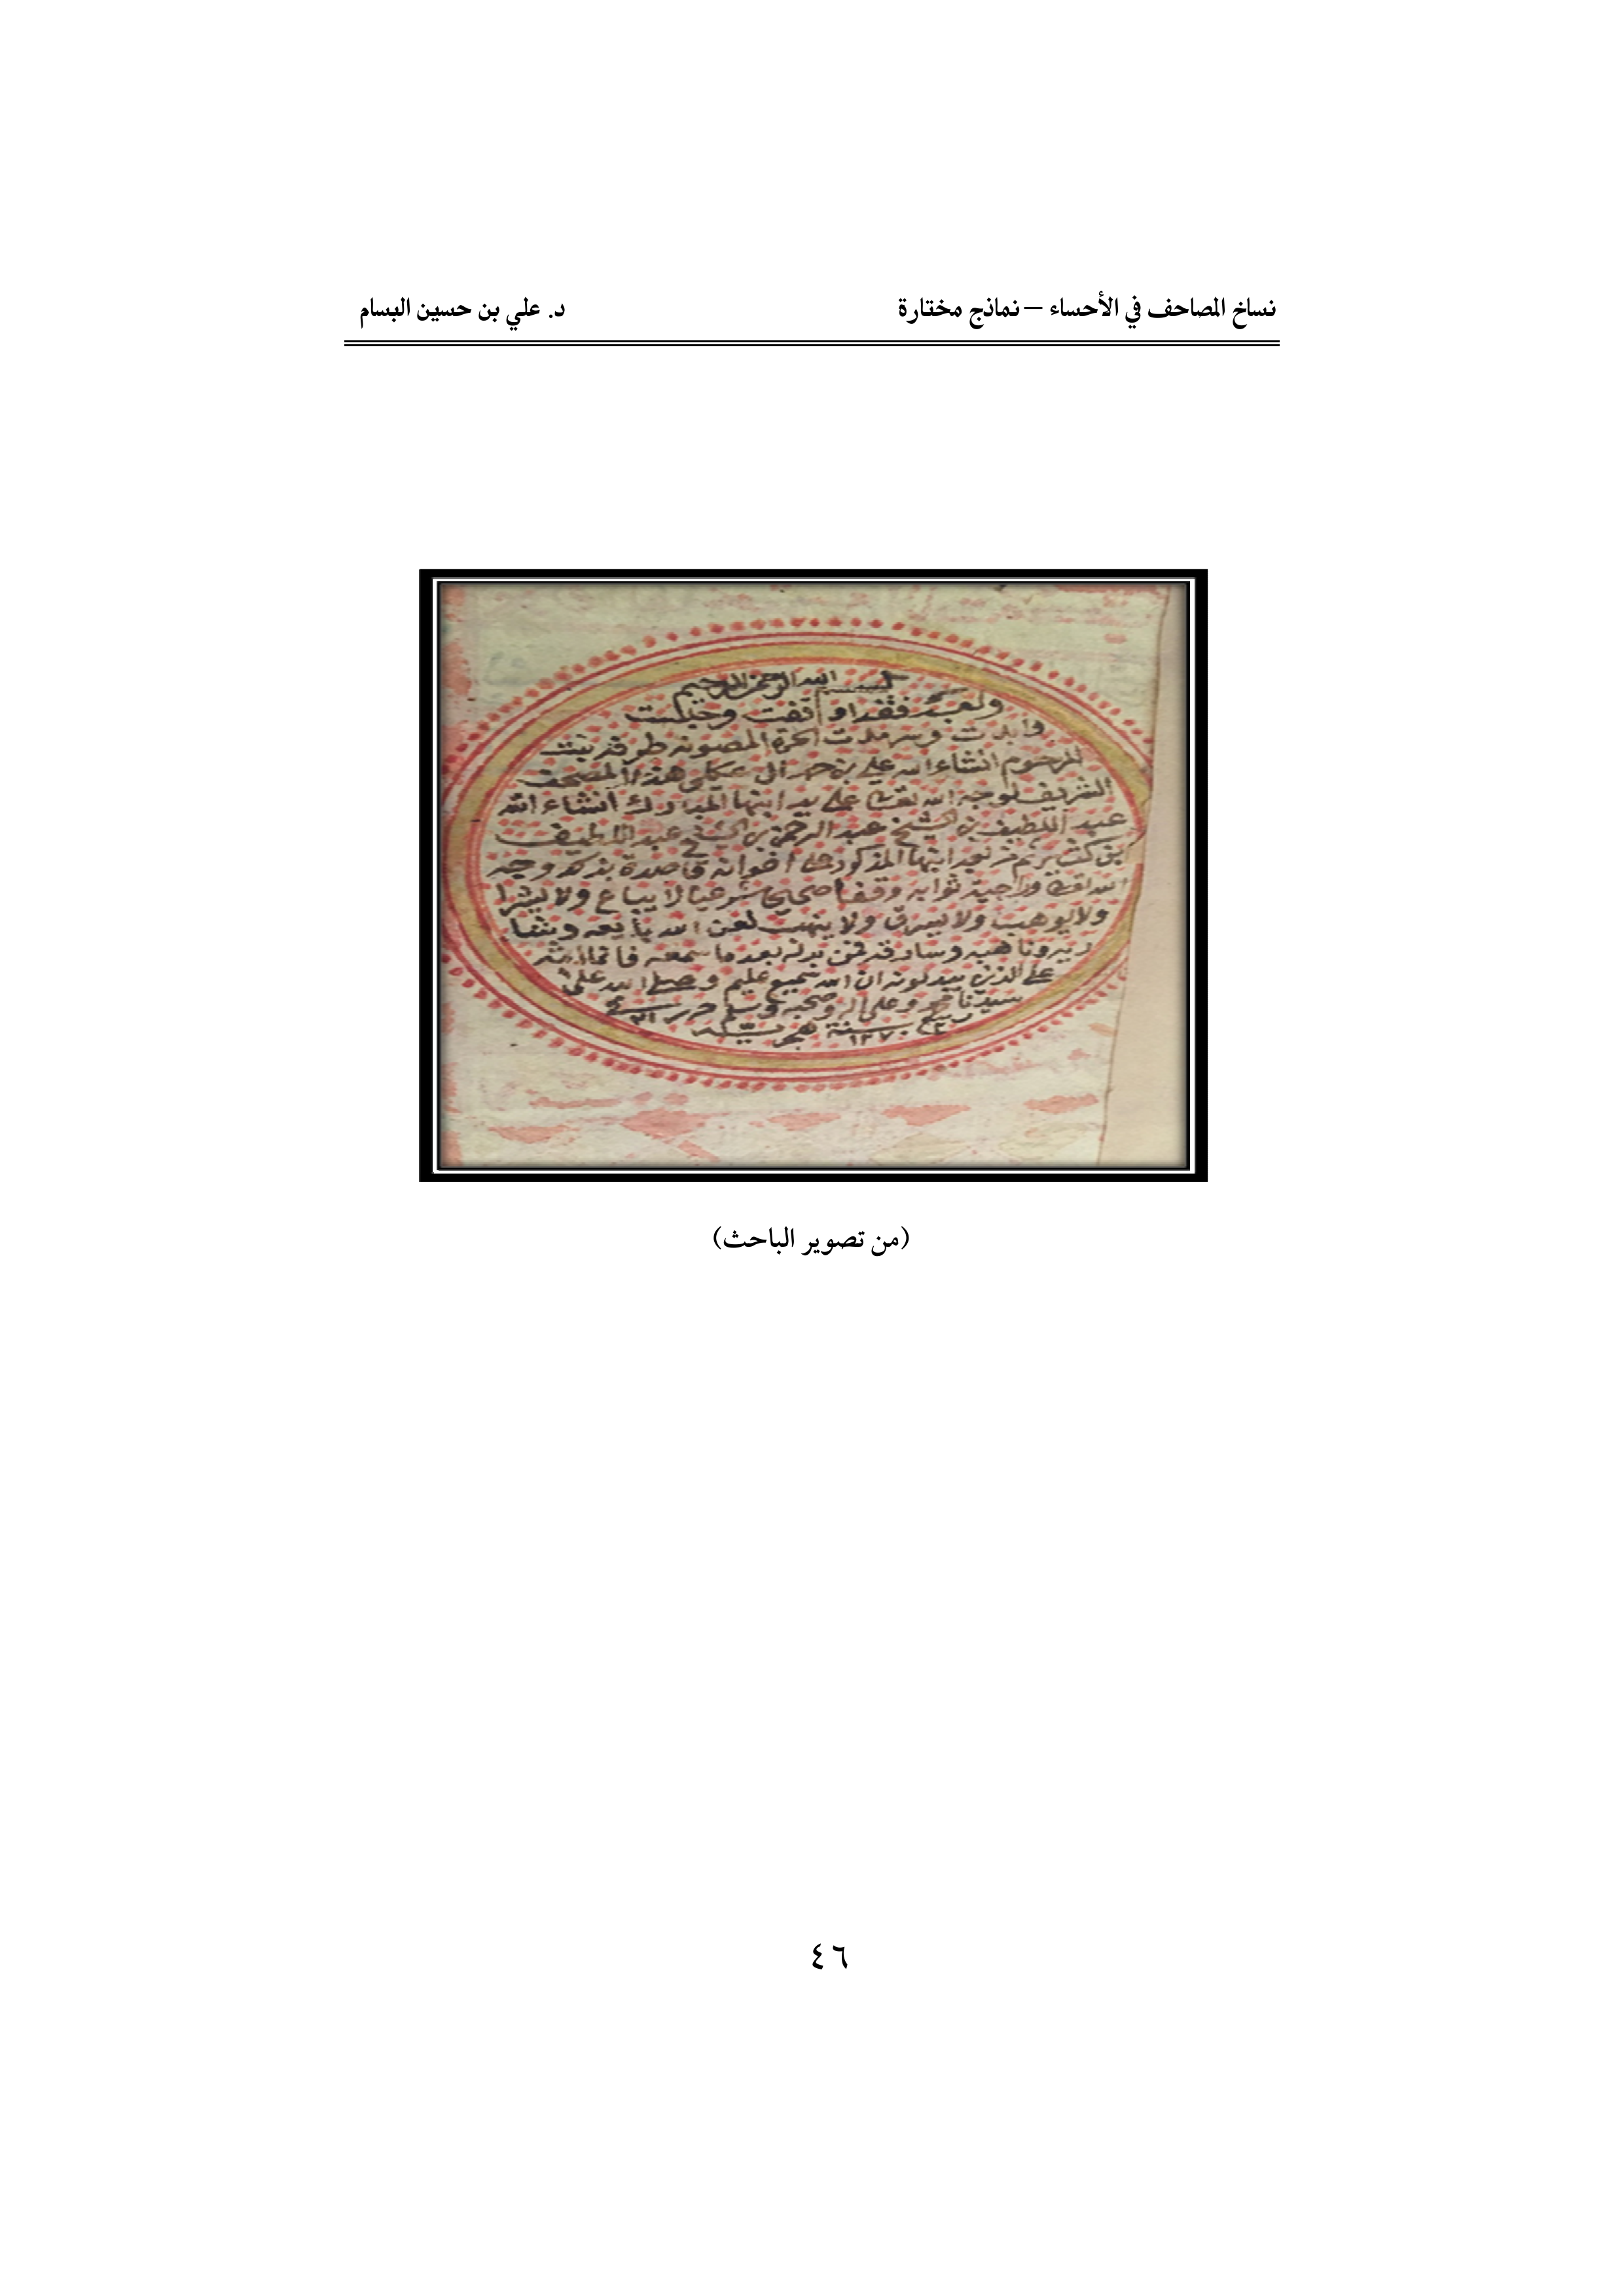 نساخ المصاحف في الأحساء – نماذج مختارة
د. علي بن حسين البسام
بسم الله الرحمن الرحيم
وبعد فقد اوقفت وحبست
وابدت وسرمدت الحرة المصونه طرفه بنت
المرحوم انشاء الله علي بن حمد ال عكلي هذا المصحف
الشريف لوجه الله تعالى على يد ابنها المبارك انشاء الله
عبد اللطيف بن الشيخ عبد الرحمن بن الشيخ عبد اللطيف
بن ثم من بعد ابنها المذكور على أخوانه قاصدة بذلك وجه
الله تعالى وراجية ثوابه وقفا صحيحا شرعيا لا يباع ولا يشرا
ولا يوهب ولا يسرق ولا ينهب لعن الله بايعه وشا
ريه وناهبه وسارقه فمن بدله بعد ما سمعه فانما اثمه
على الذين يبدلونه ان الله سميع عليم وصلى الله على
سيدنا محمد وعلى اله وصحبه وسلم حرر في ٢١
ربيع ٢ سنة ١٢٧٠ هجريه
(من تصوير الباحث)
٤٦